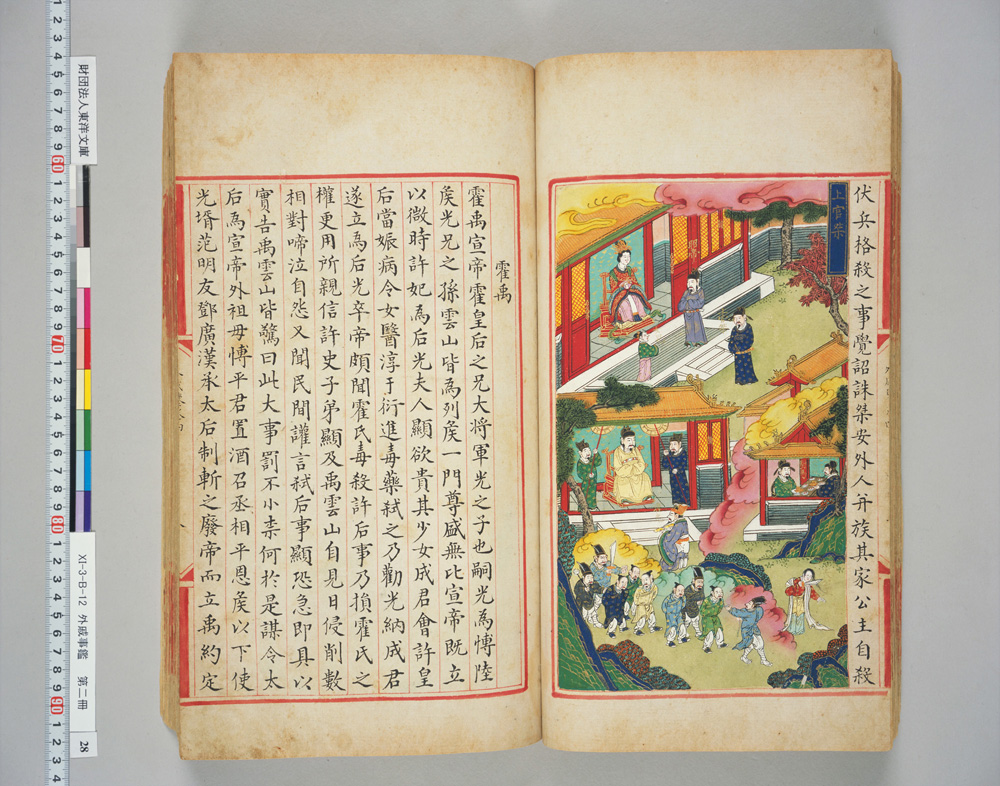 伏兵格殺之事覺詔誅桀安外人幷族其家公主自殺
上官桀
霍禹
霍禹宣帝霍皇后之兄大将軍光之子也嗣光為愽陸
矦光兄之孫雲山皆為列矦一門尊盛無比宣帝既立
以微時許妃為后光夫人顯欲貴其少女成君會許皇
后當娠病令女醫淳于衍進毒藥弑之乃勸光納成君
遂立為后光卒帝頗聞霍氏毒殺許后事乃損霍氏之
權更用所親信許史子弟顯及禹雲山自見日侵削數
相對啼泣自怨又聞民間讙言弑后事顯恐急即具以
實告禹雲山皆驚曰此大事罰不小柰何於是謀令太
后為宣帝外祖母愽平君置酒召丞相平恩矦以下使
光壻范明友鄧廣漢承太后制斬之廢帝而立禹約定
財団法人東洋文庫
XI-3-B-12 外戚事鑑 第二冊
28
1 2 3 4 5 6 7 8 9 60 1 2 3 4 5 6 7 8 9 70 1 2 3 4 5 6 7 8 9 80 1 2 3 4 5 6 7 8 9 90 1 2 3 4